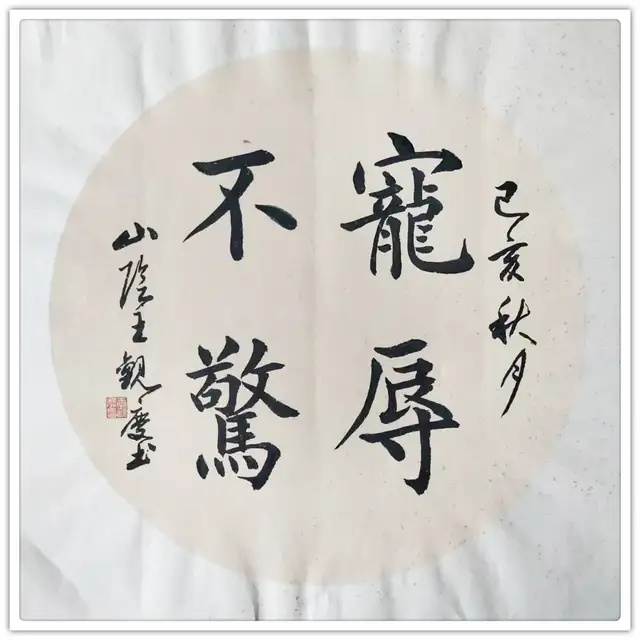 己亥秋月
寵辱
不驚
山陰王觀慶书